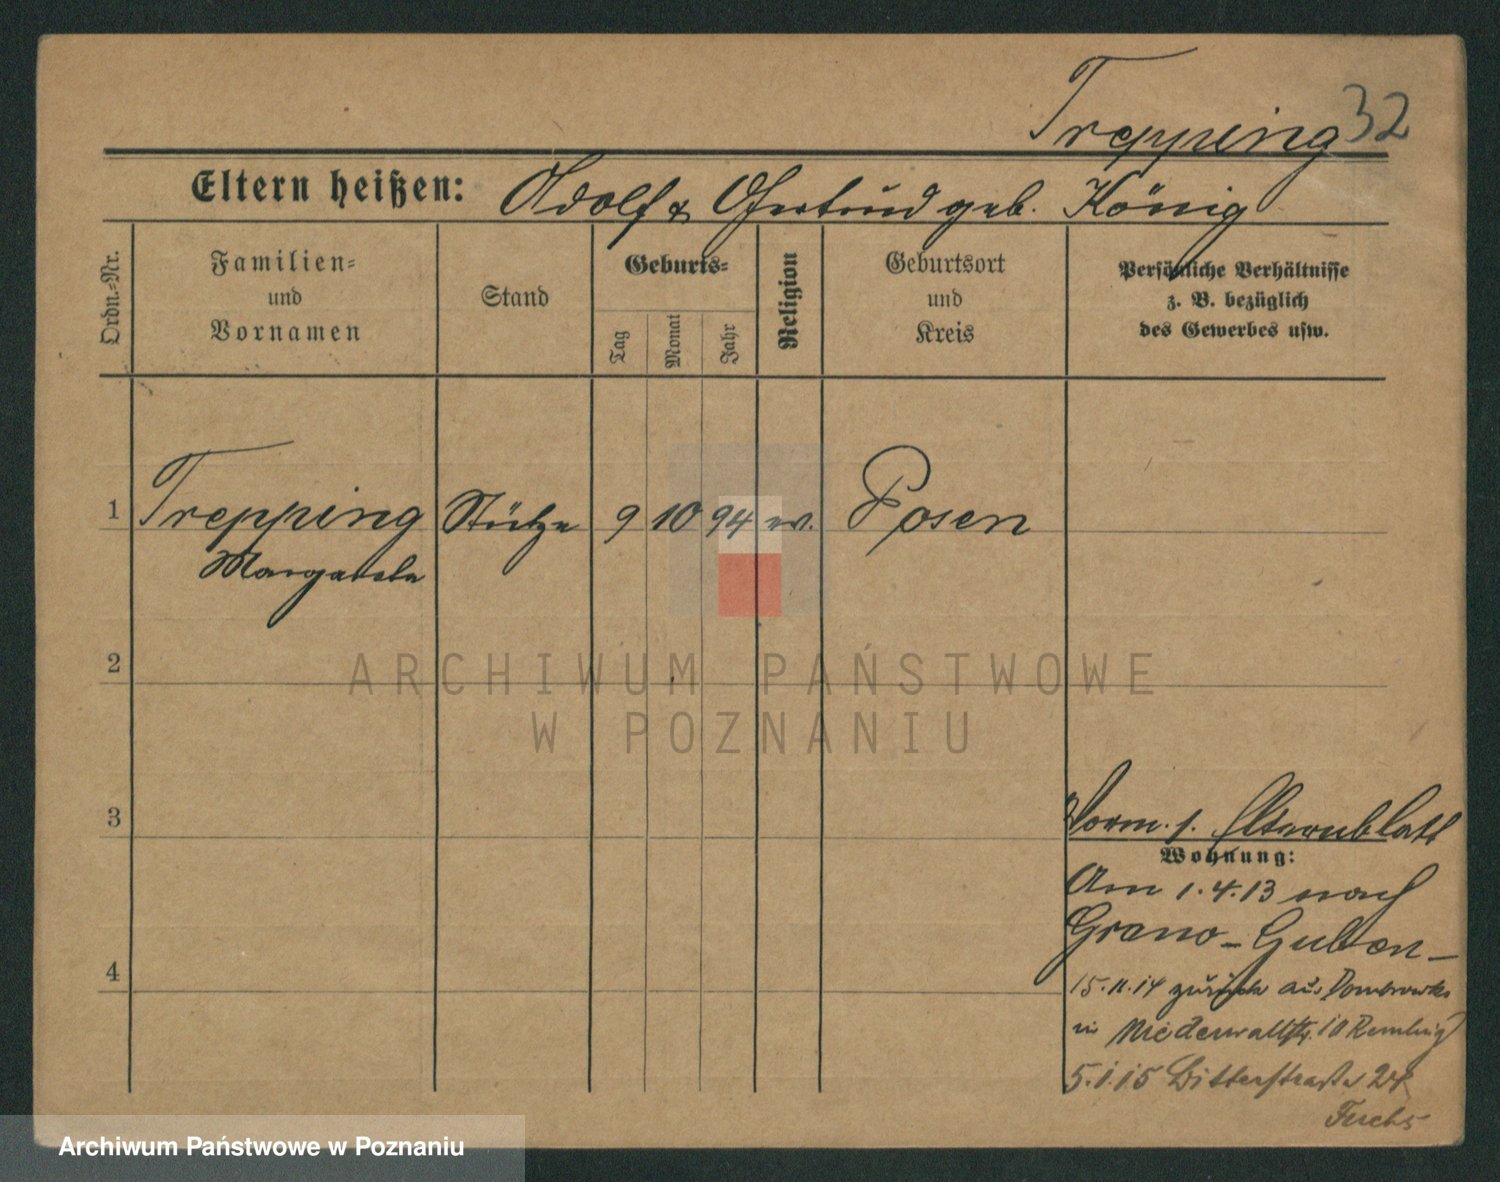 Trepping 32
Eltern heißen: Adolf & Gertrud geb. König
Ordn.-Nr.
Familien-
und
Vornamen
Stand
Geburts-
Tag
Monat
Jahr
Religion
Geburtsort
und
Kreis
Persönliche Verhältnisse
z. B. bezüglich
des Gewerbes usw.
1 Trepping Stütze 9 10 94 ev. Posen
Margarete
2
3
Vorm. s. Elternblatt
Wohnung:
Am 1.4.13 nach
Grano - Guben -
4
15.11.14 zurück aus Dombrowka
in Niederwallstr. 10
5.1.15 Ritterstraße 24
Fuchs
ARCHIWUM PAŃSTWOWE
W POZNANIU
Archiwum Państwowe w Poznaniu